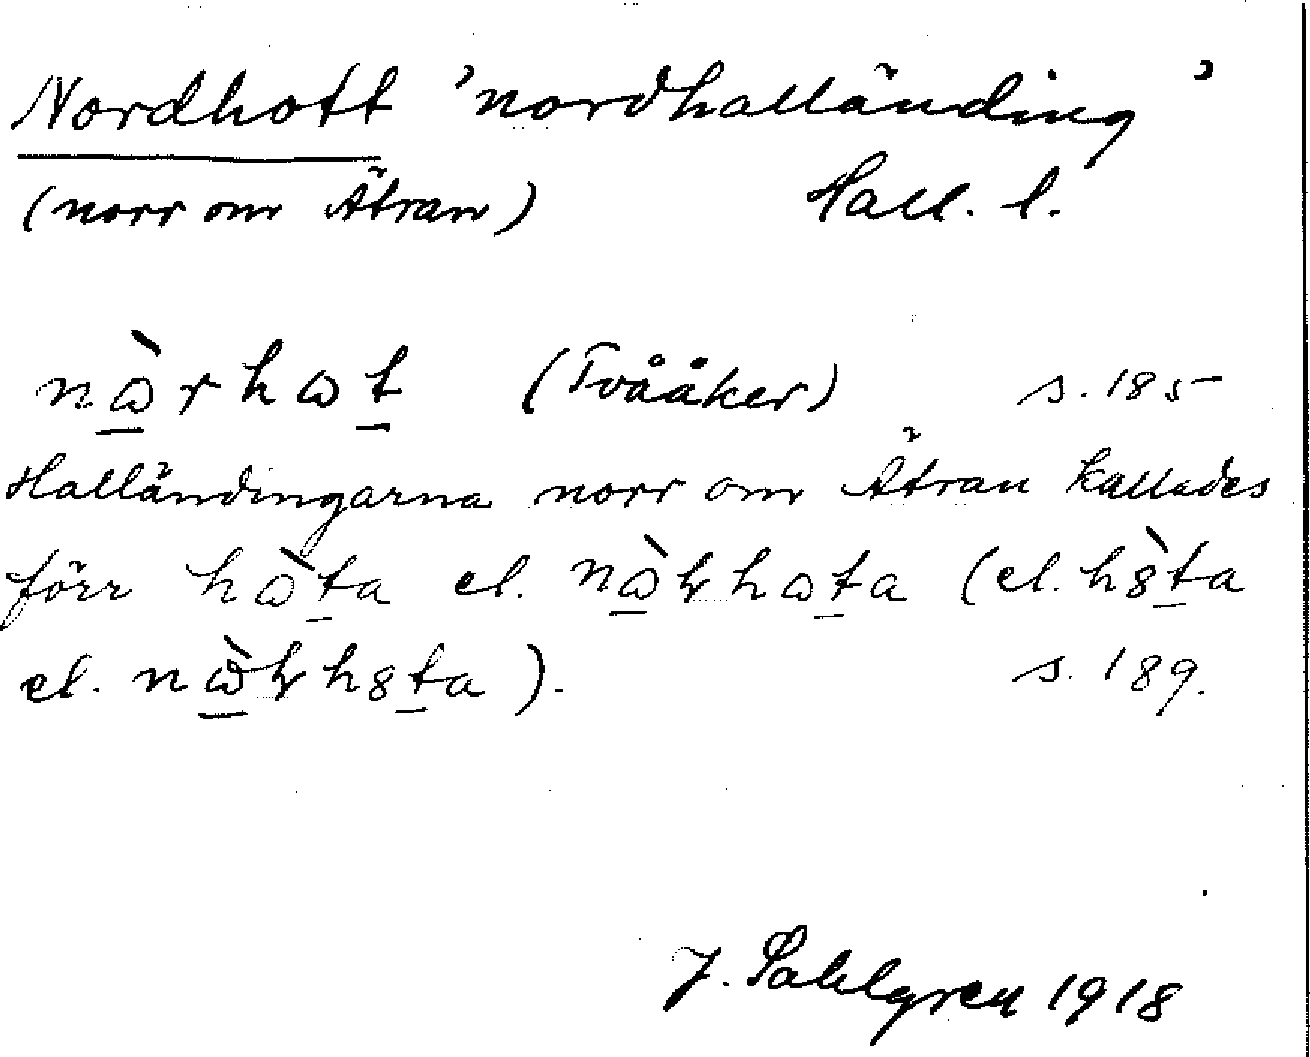 Nordhott 'nordhalländing'
(norr om Ätran) Hall. l.
nɷ̀rhɷt (Tvååker) s. 185
Halländingarna norr om Ätran kallades
förr hɷ̀ta el. nɷ̀ꝛhɷta (el. h8̀ta
el. nɷ̀ꝛh8ta). s. 189.
J. Sahlgren 1918